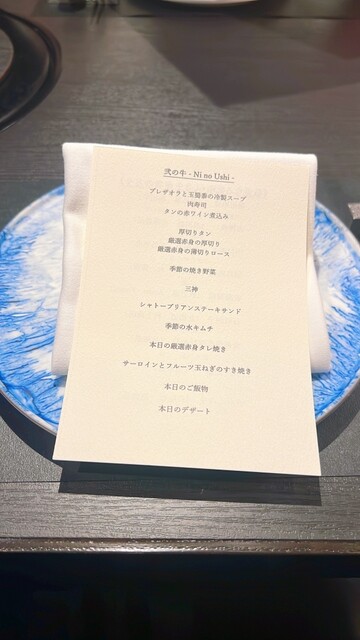 弐の牛 - Ni no Ushi -
ブレザオラと玉蜀黍の冷製スープ
肉寿司
タンの赤ワイン煮込み
厚切りタン
厳選赤身の厚切り
厳選赤身の薄切りロース
季節の焼き野菜
三神
シャトーブリアンステーキサンド
季節の水キムチ
本日の厳選赤身タレ焼き
サーロインとフルーツ玉ねぎのすき焼き
本日のご飯物
本日のデザート